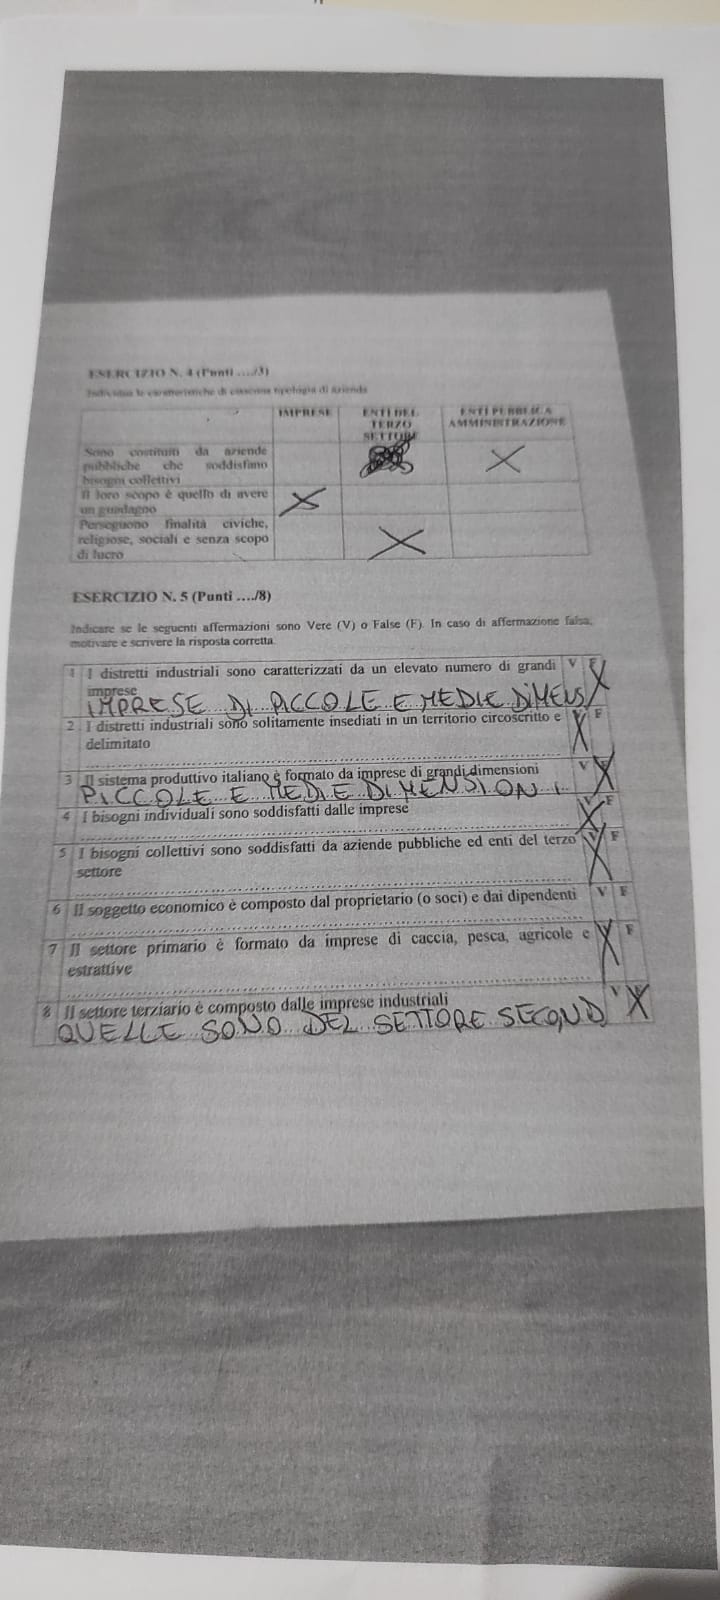 ESERCIZIO N. 4 (Punti …./3)
Individua le caratteristiche di ciascuna tipologia di azienda
IMPRESE ENTI DEL ENTI PUBBLICA
TERZO AMMINISTRAZIONE
SETTORE
Sono costituiti da aziende
pubbliche che soddisfano
bisogni collettivi
Il loro scopo è quello di avere
un guadagno
Perseguono finalità civiche,
religiose, sociali e senza scopo
di lucro
ESERCIZIO N. 5 (Punti …./8)
Indicare se le seguenti affermazioni sono Vere (V) o False (F). In caso di affermazione falsa,
motivare e scrivere la risposta corretta.
1 I distretti industriali sono caratterizzati da un elevato numero di grandi V F
imprese
IMPRESE DI PICCOLE E MEDIE DIMENS
2 I distretti industriali sono solitamente insediati in un territorio circoscritto e V F
delimitato
3 Il sistema produttivo italiano è formato da imprese di grandi dimensioni V F
PICCOLE E MEDIE DIMENSIONI
4 I bisogni individuali sono soddisfatti dalle imprese V F
5 I bisogni collettivi sono soddisfatti da aziende pubbliche ed enti del terzo V F
settore
6 Il soggetto economico è composto dal proprietario (o soci) e dai dipendenti V F
7 Il settore primario è formato da imprese di caccia, pesca, agricole e V F
estrattive
8 Il settore terziario è composto dalle imprese industriali V F
QUELLE SONO DEL SETTORE SECOND